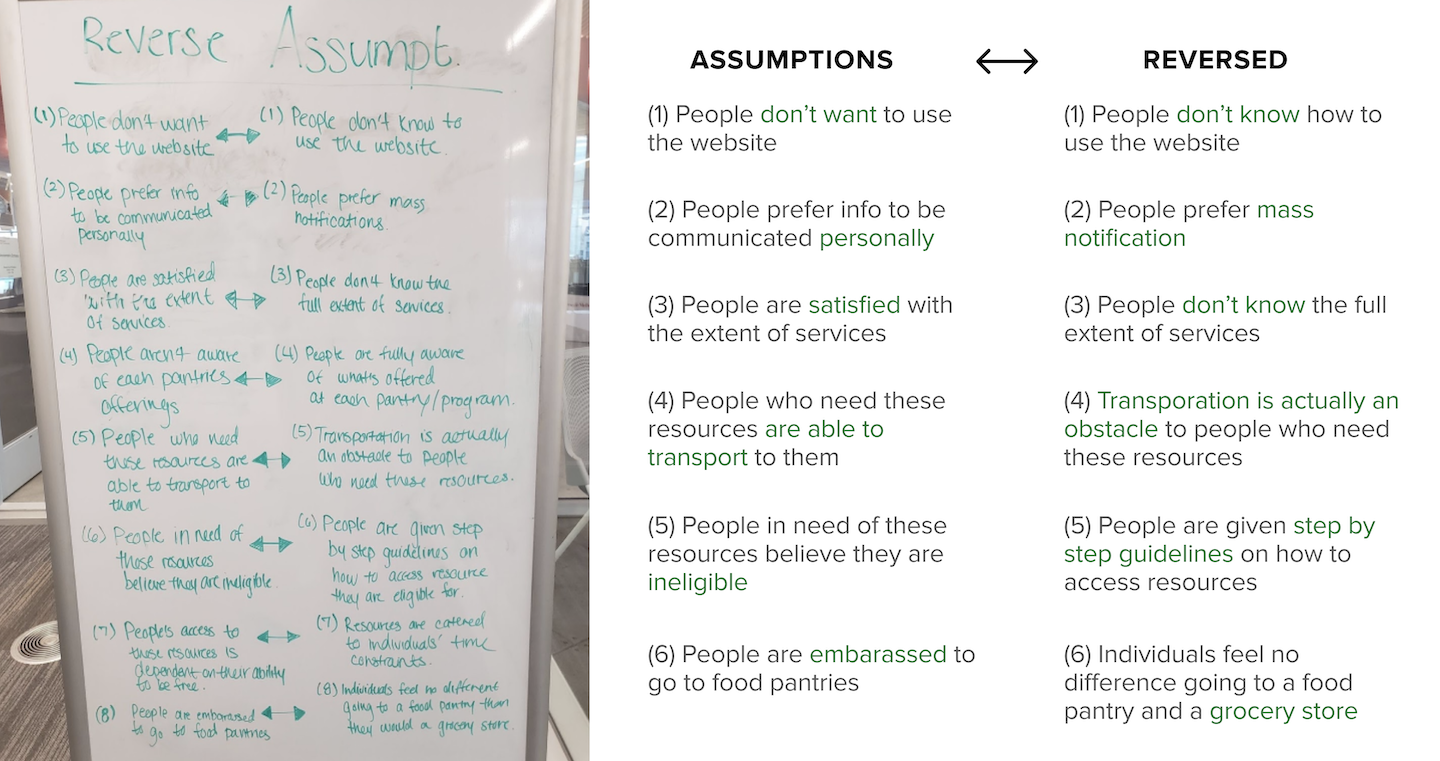 Reverse Assumpt.
(1) People don't want
to use the website
(1) People don't know to
use the website.
(2) People prefer info
to be communicated
personally
(2) People prefer mass
notifications.
(3) People are satisfied
with the extent
of services.
(3) People don't know the
full extent of services.
(4) People aren't aware
of each pantries
offerings
(4) People are fully aware
of whats offered
at each pantry/program.
(5) People who need
these resources are
able to transport to
them
(5) Transportation is actually
an obstacle to people
who need these resources.
(6) People in need of
these resources
believe they are ineligible.
(6) People are given step
by step guidelines on
how to access resource
they are eligible for.
(7) People's access to
these resources is
dependent on their ability
to be free.
(7) Resources are catered
to individuals' time
constraints.
(8) People are embarassed
to go to food pantries
(8) Individuals feel no different
going to a food pantry than
they would a grocery store.
ASSUMPTIONS
REVERSED
(1) People don't want to use
the website
(1) People don't know how to
use the website
(2) People prefer info to be
communicated personally
(2) People prefer mass
notification
(3) People are satisfied with
the extent of services
(3) People don't know the full
extent of services
(4) People who need these
resources are able to
transport to them
(4) Transporation is actually an
obstacle to people who need
these resources
(5) People in need of these
resources believe they are
ineligible
(5) People are given step by
step guidelines on how to
access resources
(6) People are embarassed to
go to food pantries
(6) Individuals feel no
difference going to a food
pantry and a grocery store